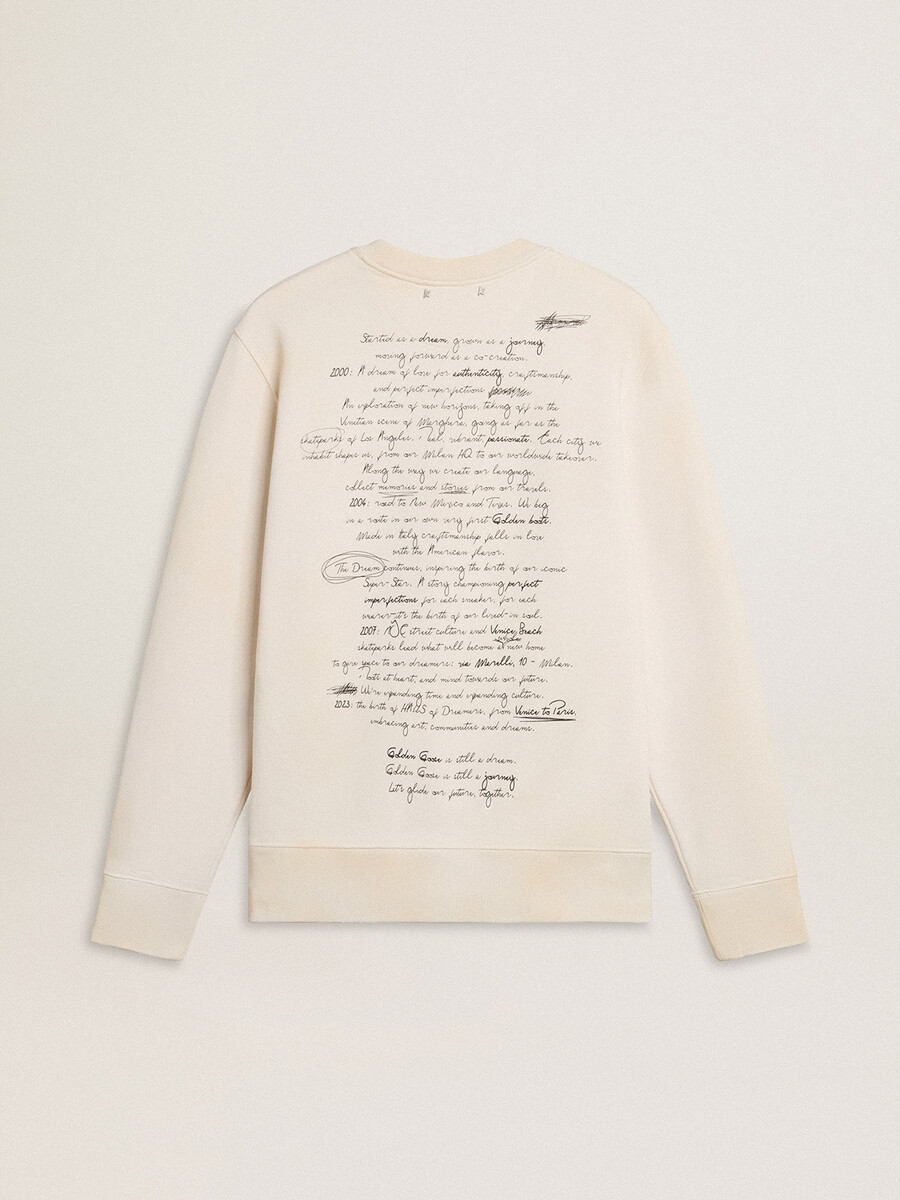 Started as a dream, grown as a journey,
moving forward as a co-creation.
2000: A dream of love for authenticity, craftsmanship,
and perfect imperfections
An exploration of new horizons, taking off in the
Venetian scene of Marghera, going as far as the
skateparks of Los Angeles. Real, vibrant, passionate. Each city we
inhabit shapes us, from our Milan HQ to our worldwide takeover.
Along the way we create our language,
collect memories and stories from our travels.
2004: road to New Mexico and Texas. We big
in a route in our own very first Golden boots.
Made in Italy craftsmanship falls in love
with the American flavor.
The Dream continues, inspiring the birth of our iconic
Super-Star. A story championing perfect
imperfections for each sneaker, for each
wearer-it's the birth of our lived-in soul.
2007: street culture and Venice Beach
skateparks lead what will become new home
to give space to our dreamers: via Morelli, 10 - Milan.
Roots at heart, and mind towards our future.
We're expanding time and expanding culture.
2023: the birth of HAUS of Dreamers, from Venice to Paris,
embracing art, communities and dreams.
Golden Goose is still a dream.
Golden Goose is still a journey.
Let's glide our future, together.